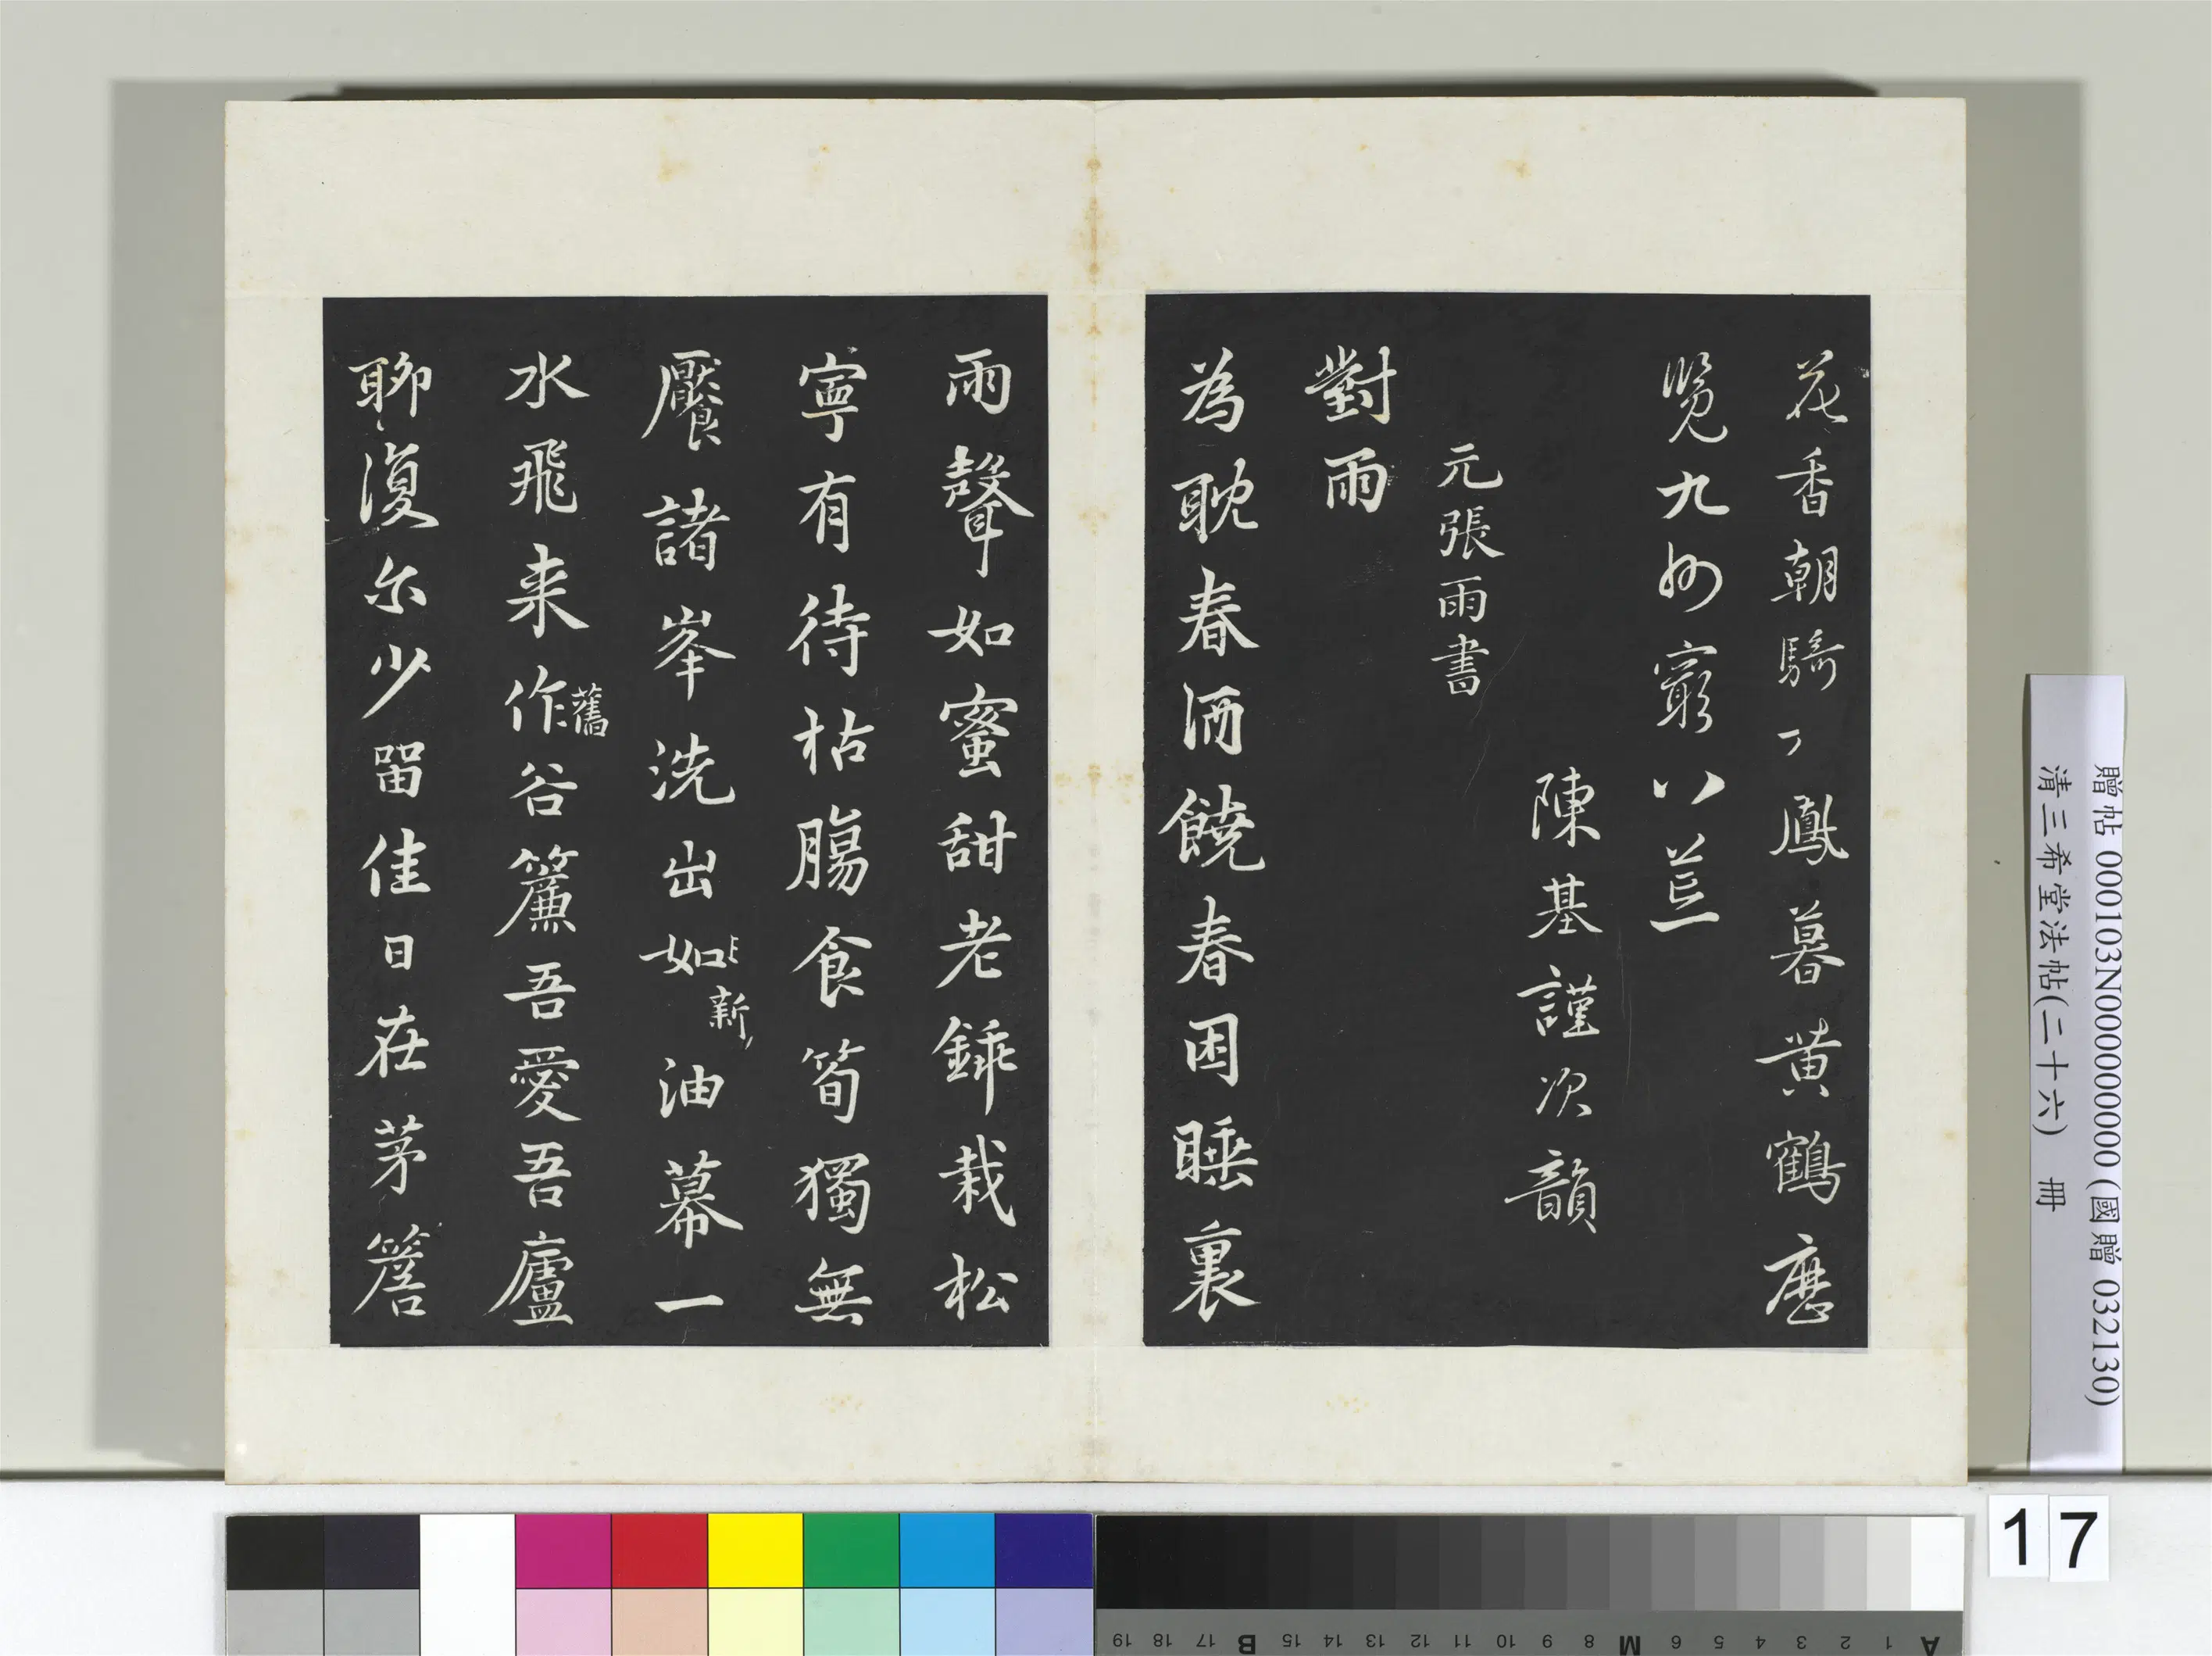 花香朝騎丁鳳暮黃鶴歷
覽九州窮八荒
陳基謹次韻
元張雨書
對雨
為耽春酒饒春困睡裏
雨聲如蜜甜老鍤栽松
寧有待枯腸食筍獨無
饜諸峯洗出如新油幕一
水飛来作舊谷簾吾愛吾廬
聊復尔少留佳日在茅簷
贈帖 000103N000000000 (國贈 032130)
清三希堂法帖(二十六) 冊
17
A 1 2 3 4 5 6 M 8 9 10 11 12 13 14 15 B 17 18 19